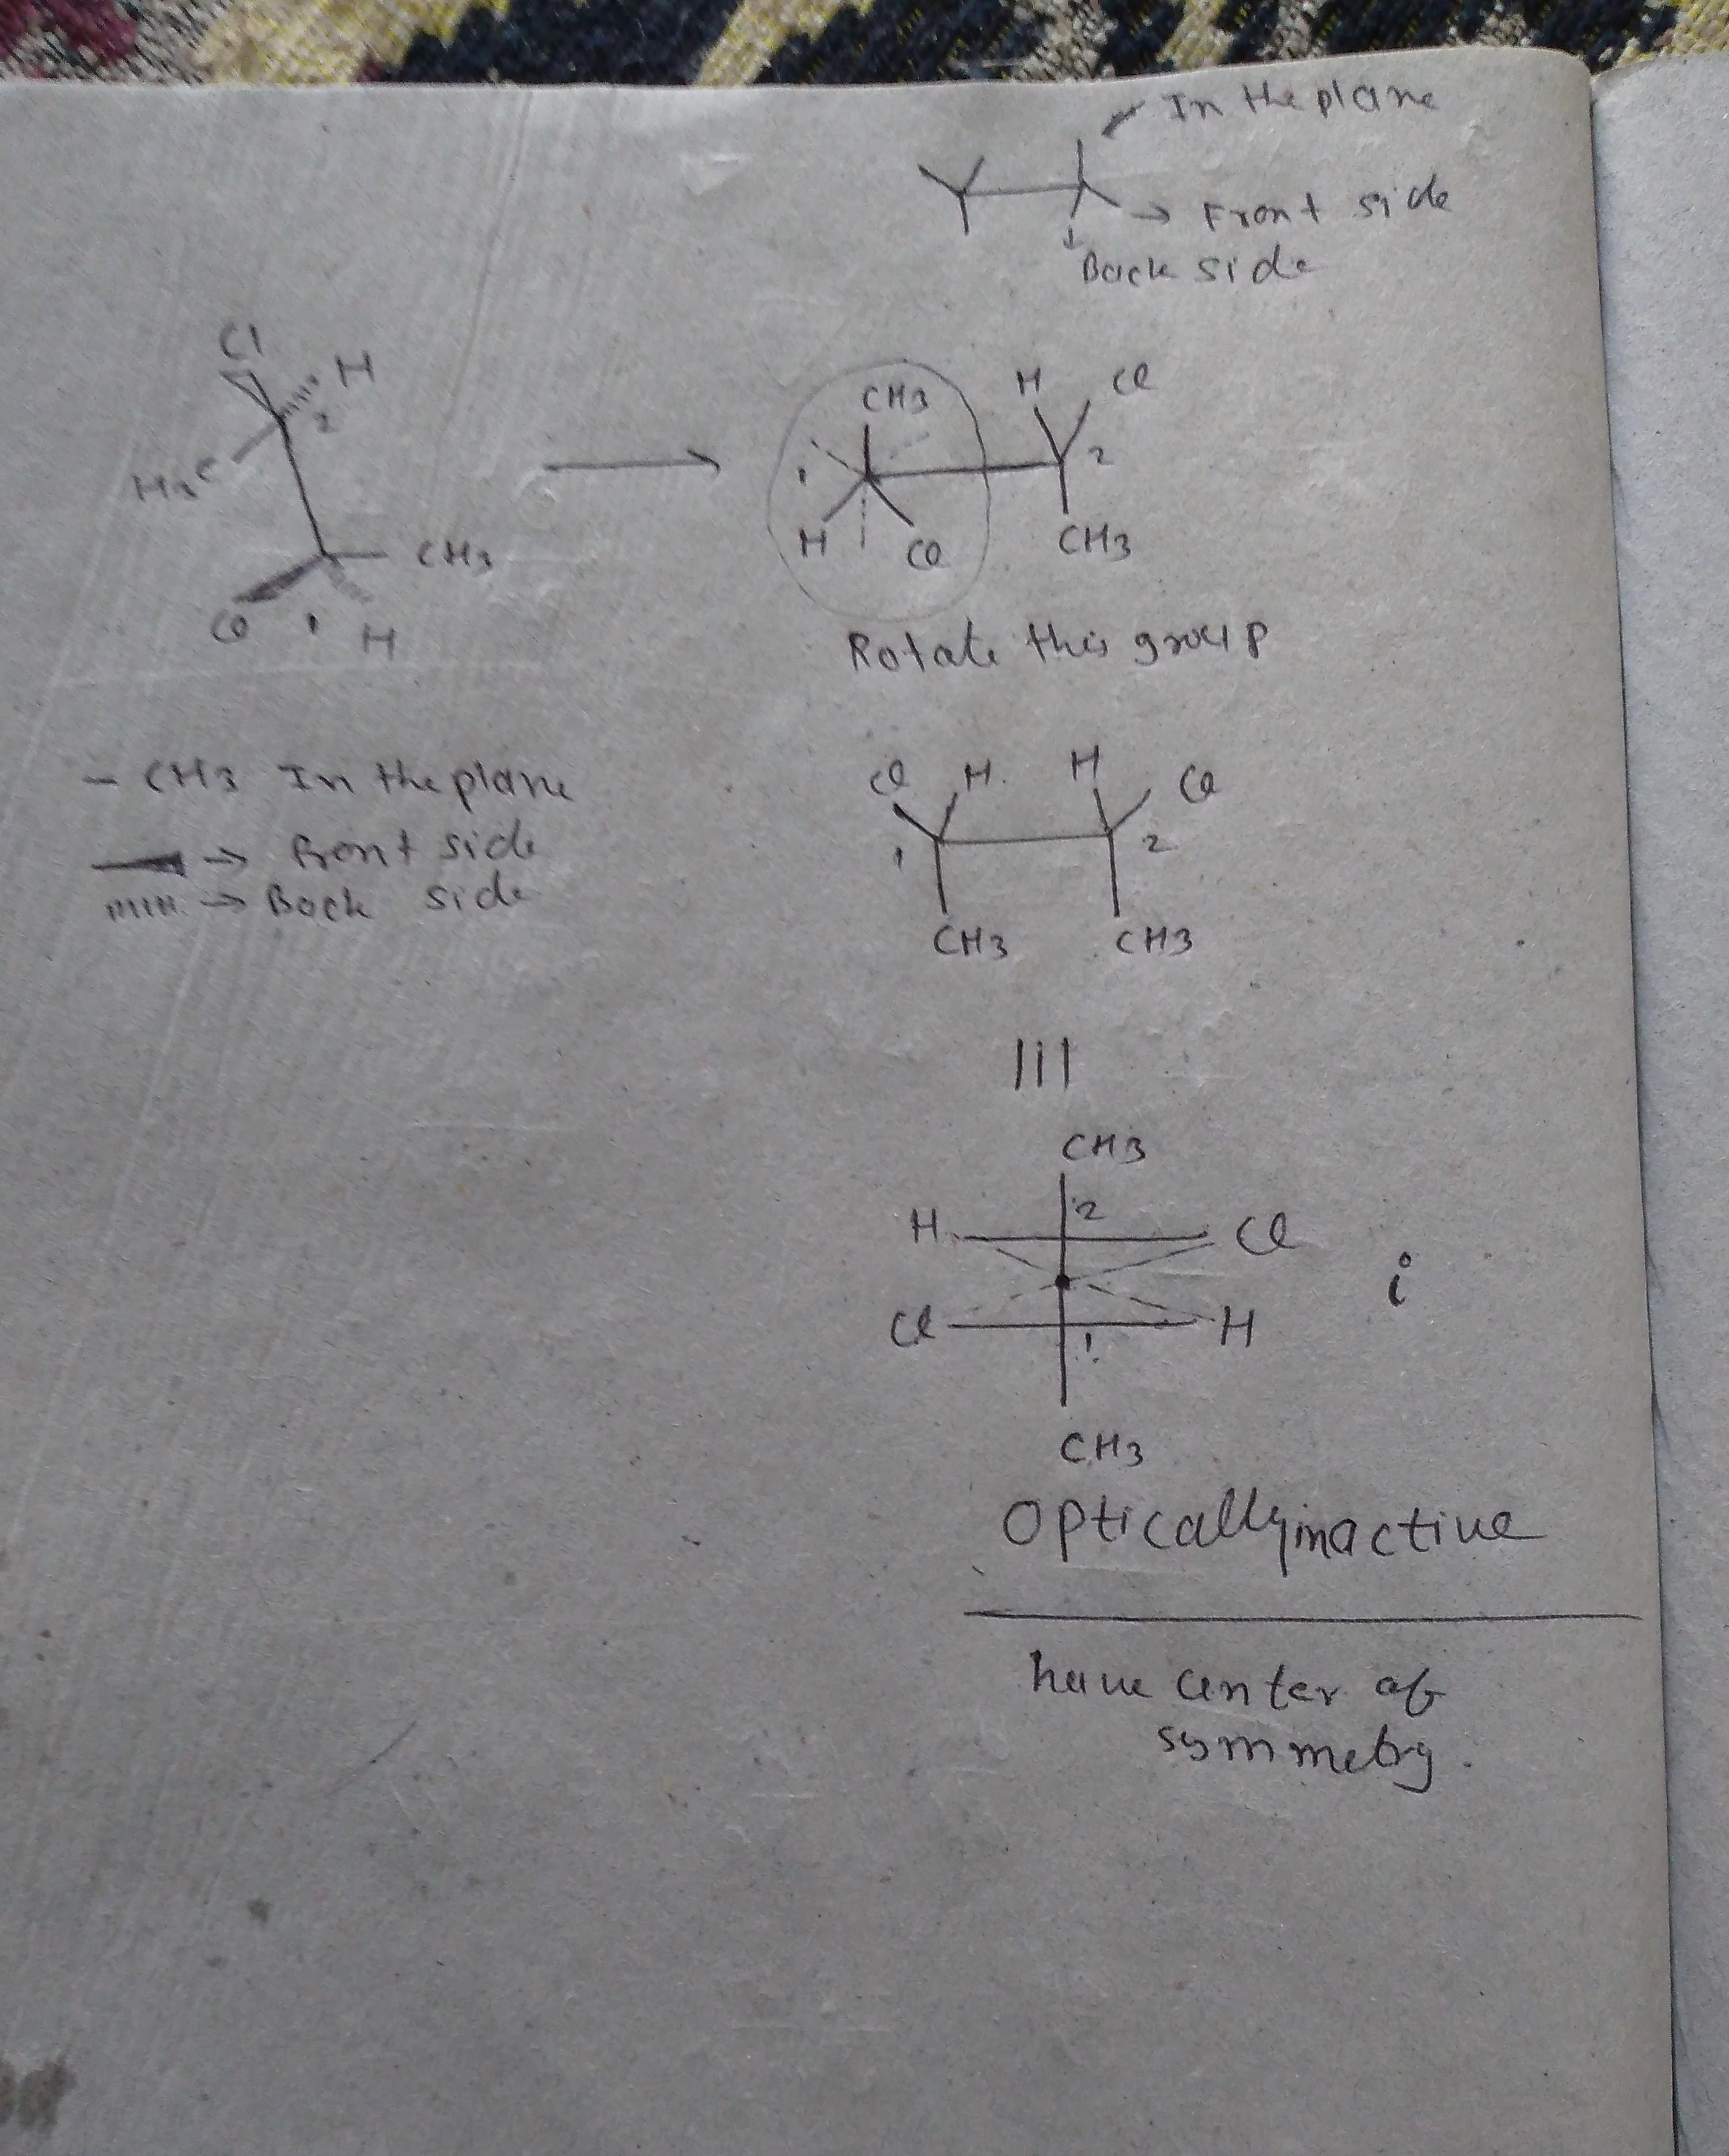 In the plane
→ Front side
Back side
Cl H
2
H3C
CH3
Cl 1 H
CH3 H Cl
1 2
H Cl CH3
Rotate this group
— CH3 In the plane
→ Front side
→ Back side
Cl H. H Cl
1 2
CH3 CH3
CH3
2
H Cl
i
Cl H
1
CH3
Optically inactive
have center of
symmetry.